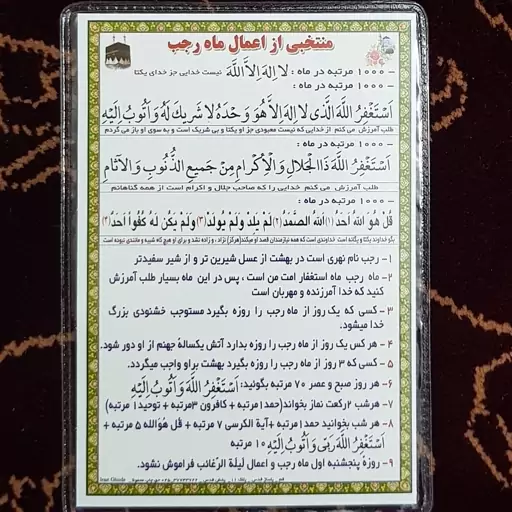 منتخبی از اعمال ماه رجب
- ۱۰۰۰ مرتبه در ماه : لا اِلهَ اِلاَّ اللَّه نیست خدایی جز خدای یکتا
- ۱۰۰۰ مرتبه در ماه :
اَسْتَغْفِرُ اللّهَ الَّذی لا اِلهَ اِلاّ هُوَ وَحْدَهُ لا شَریكَ لَهُ وَ اَتُوبُ اِلَیْهِ
طلب آمرزش می کنم از خدایی که نیست معبودی جز او یکتا و بی شریک است و به سوی او باز می گردم
- ۱۰۰۰ مرتبه در ماه :
اَسْتَغْفِرُ اللّهَ ذَا الْجَلالِ وَ الْاِكْرامِ مِنْ جَمیعِ الذُّنُوبِ وَ الْآثامِ
طلب آمرزش می کنم خدایی را که صاحب جلال و اکرام است از همه گناهانم
- ۱۰۰۰ مرتبه در ماه :
قُل هُوَ اللهُ اَحَدٌ (۱) اَللهُ الصَّمَدُ (۲) لَمْ یَلِدْ وَ لَمْ یُولَدْ (۳) وَ لَمْ یَکُنْ لَهُ کُفُواً اَحَدٌ (۴)
بگو خداوند یکتا و یگانه است خداوندی است که همه نیازمندان قصد او میکنند (هرگز) نزاد، و زاده نشد و برای او هیچ گاه شبیه و مانندی نبوده است
۱ - رجب نام نهری است در بهشت از عسل شیرین تر و از شیر سفیدتر
۲ - ماه رجب ماه استغفار امت من است ، پس در این ماه بسیار طلب آمرزش
کنید که خدا آمرزنده و مهربان است
۳ - کسی که یک روز از ماه رجب را روزه بگیرد مستوجب خشنودی بزرگ
خدا میشود.
۴ - هر کس یک روز از ماه رجب را روزه بدارد آتش یکسالهٔ جهنم از او دور شود.
۵ - کسی که ۳ روز از ماه رجب را روزه بگیرد بهشت براو واجب میگردد.
۶ - هر روز صبح و عصر ۷۰ مرتبه بگوئید: اَسْتَغْفِرُ اللّهَ وَ اَتُوبُ اِلَیْهِ
۷ - هرشب ۲رکعت نماز بخواند(حمد۱مرتبه + کافرون ۳مرتبه + توحید۱ مرتبه)
۸- هر شب بخوانید حمد۱مرتبه +آیة الکرسی ۷ مرتبه + قُل هُوَالله ۵ مرتبه +
اَسْتَغْفِرُ اللّهَ رَبّی وَ اَتُوبُ اِلَیْهِ ۱۰ مرتبه
۹- روزهٔ پنجشنبه اول ماه رجب و اعمال لیلة الرغائب فراموش نشود.